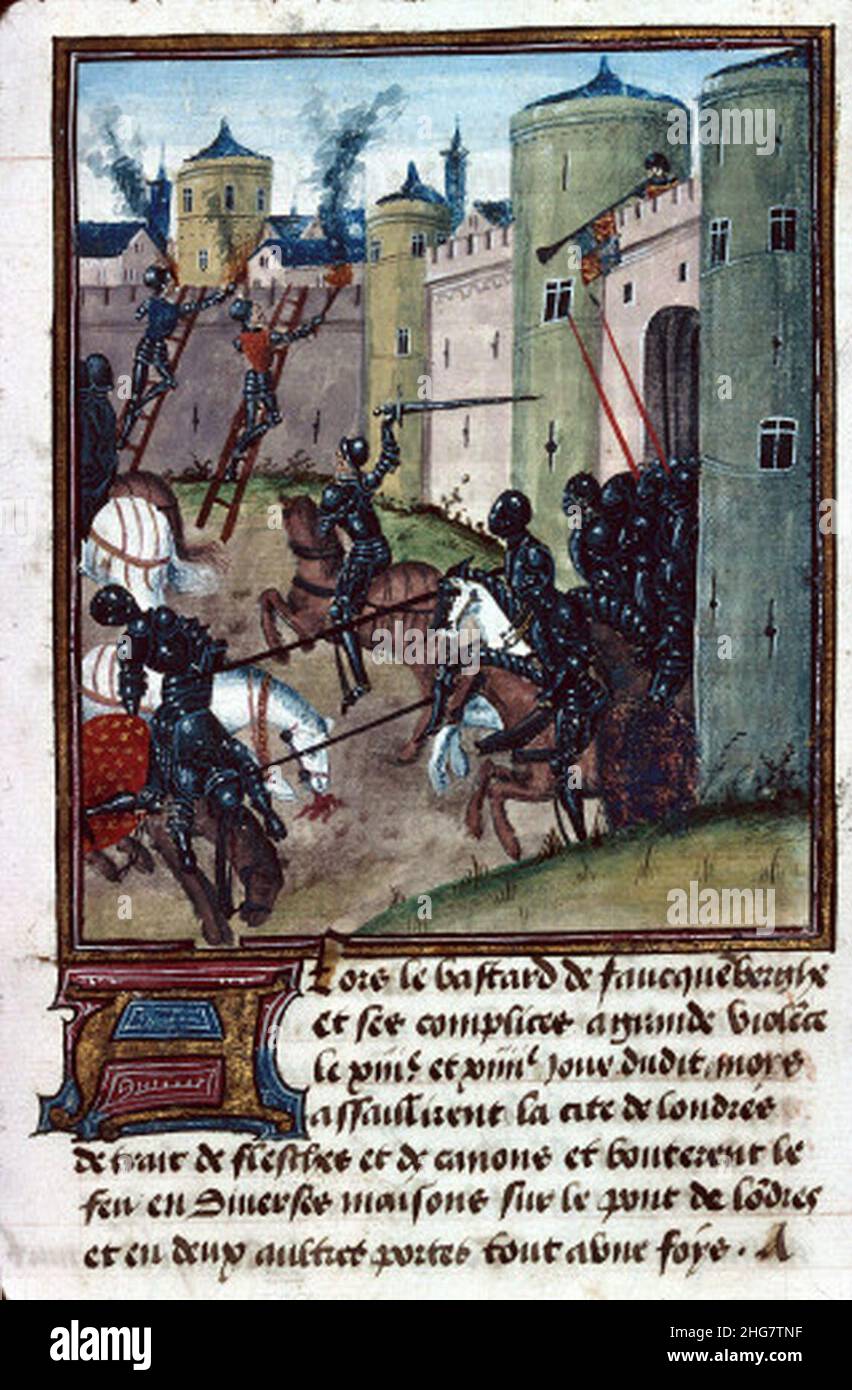 alamy
alamy
alamy
Lors le bastard de faucqueberghe
et ses complices a grande violẽce
le xiiiᵉ et xiiiiᵉ jour dudit mois
assaillirent la cite de londres
de trait de flesches et de canons et bouterent le
feu en diverses maisons sur le pont de lõdres
et en deux aultres portes tout a une foys. A
alamy
Image ID: 2HG7TNF
www.alamy.com